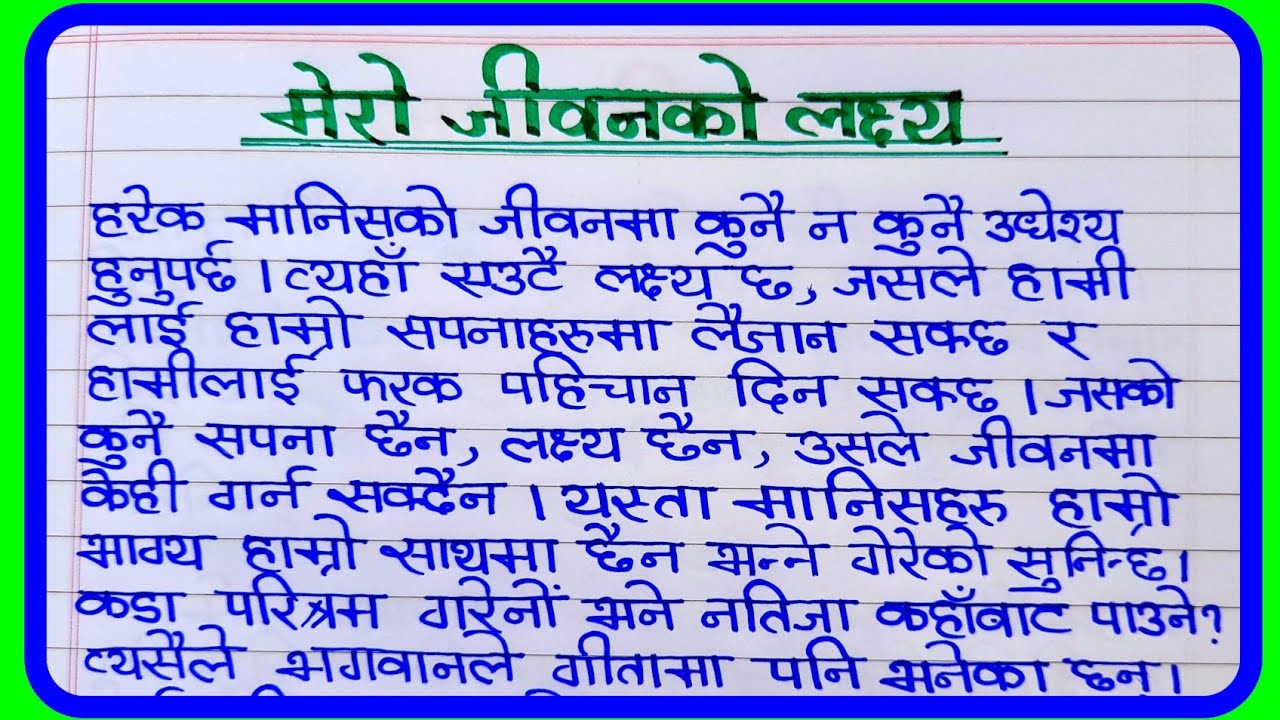 मेरो जीवनको लक्ष्य
हरेक मानिसको जीवनमा कुनै न कुनै उधेश्य
हुनुपर्छ । त्यहाँ एउटै लक्ष्य छ, जसले हामी
लाई हाम्रो सपनाहरुमा लैजान सक्छ र
हामीलाई फरक पहिचान दिन सक्छ । जसको
कुनै सपना छैन, लक्ष्य छैन, उसले जीवनमा
केही गर्न सक्दैन । यस्ता मानिसहरु हाम्रो
भाग्य हाम्रो साथमा छैन भन्ने गरेको सुनिन्छ।
कडा परिश्रम गरेनौं भने नतिजा कहाँबाट पाउने?
त्यसैले भगवानले गीतामा पनि भनेका छन्।